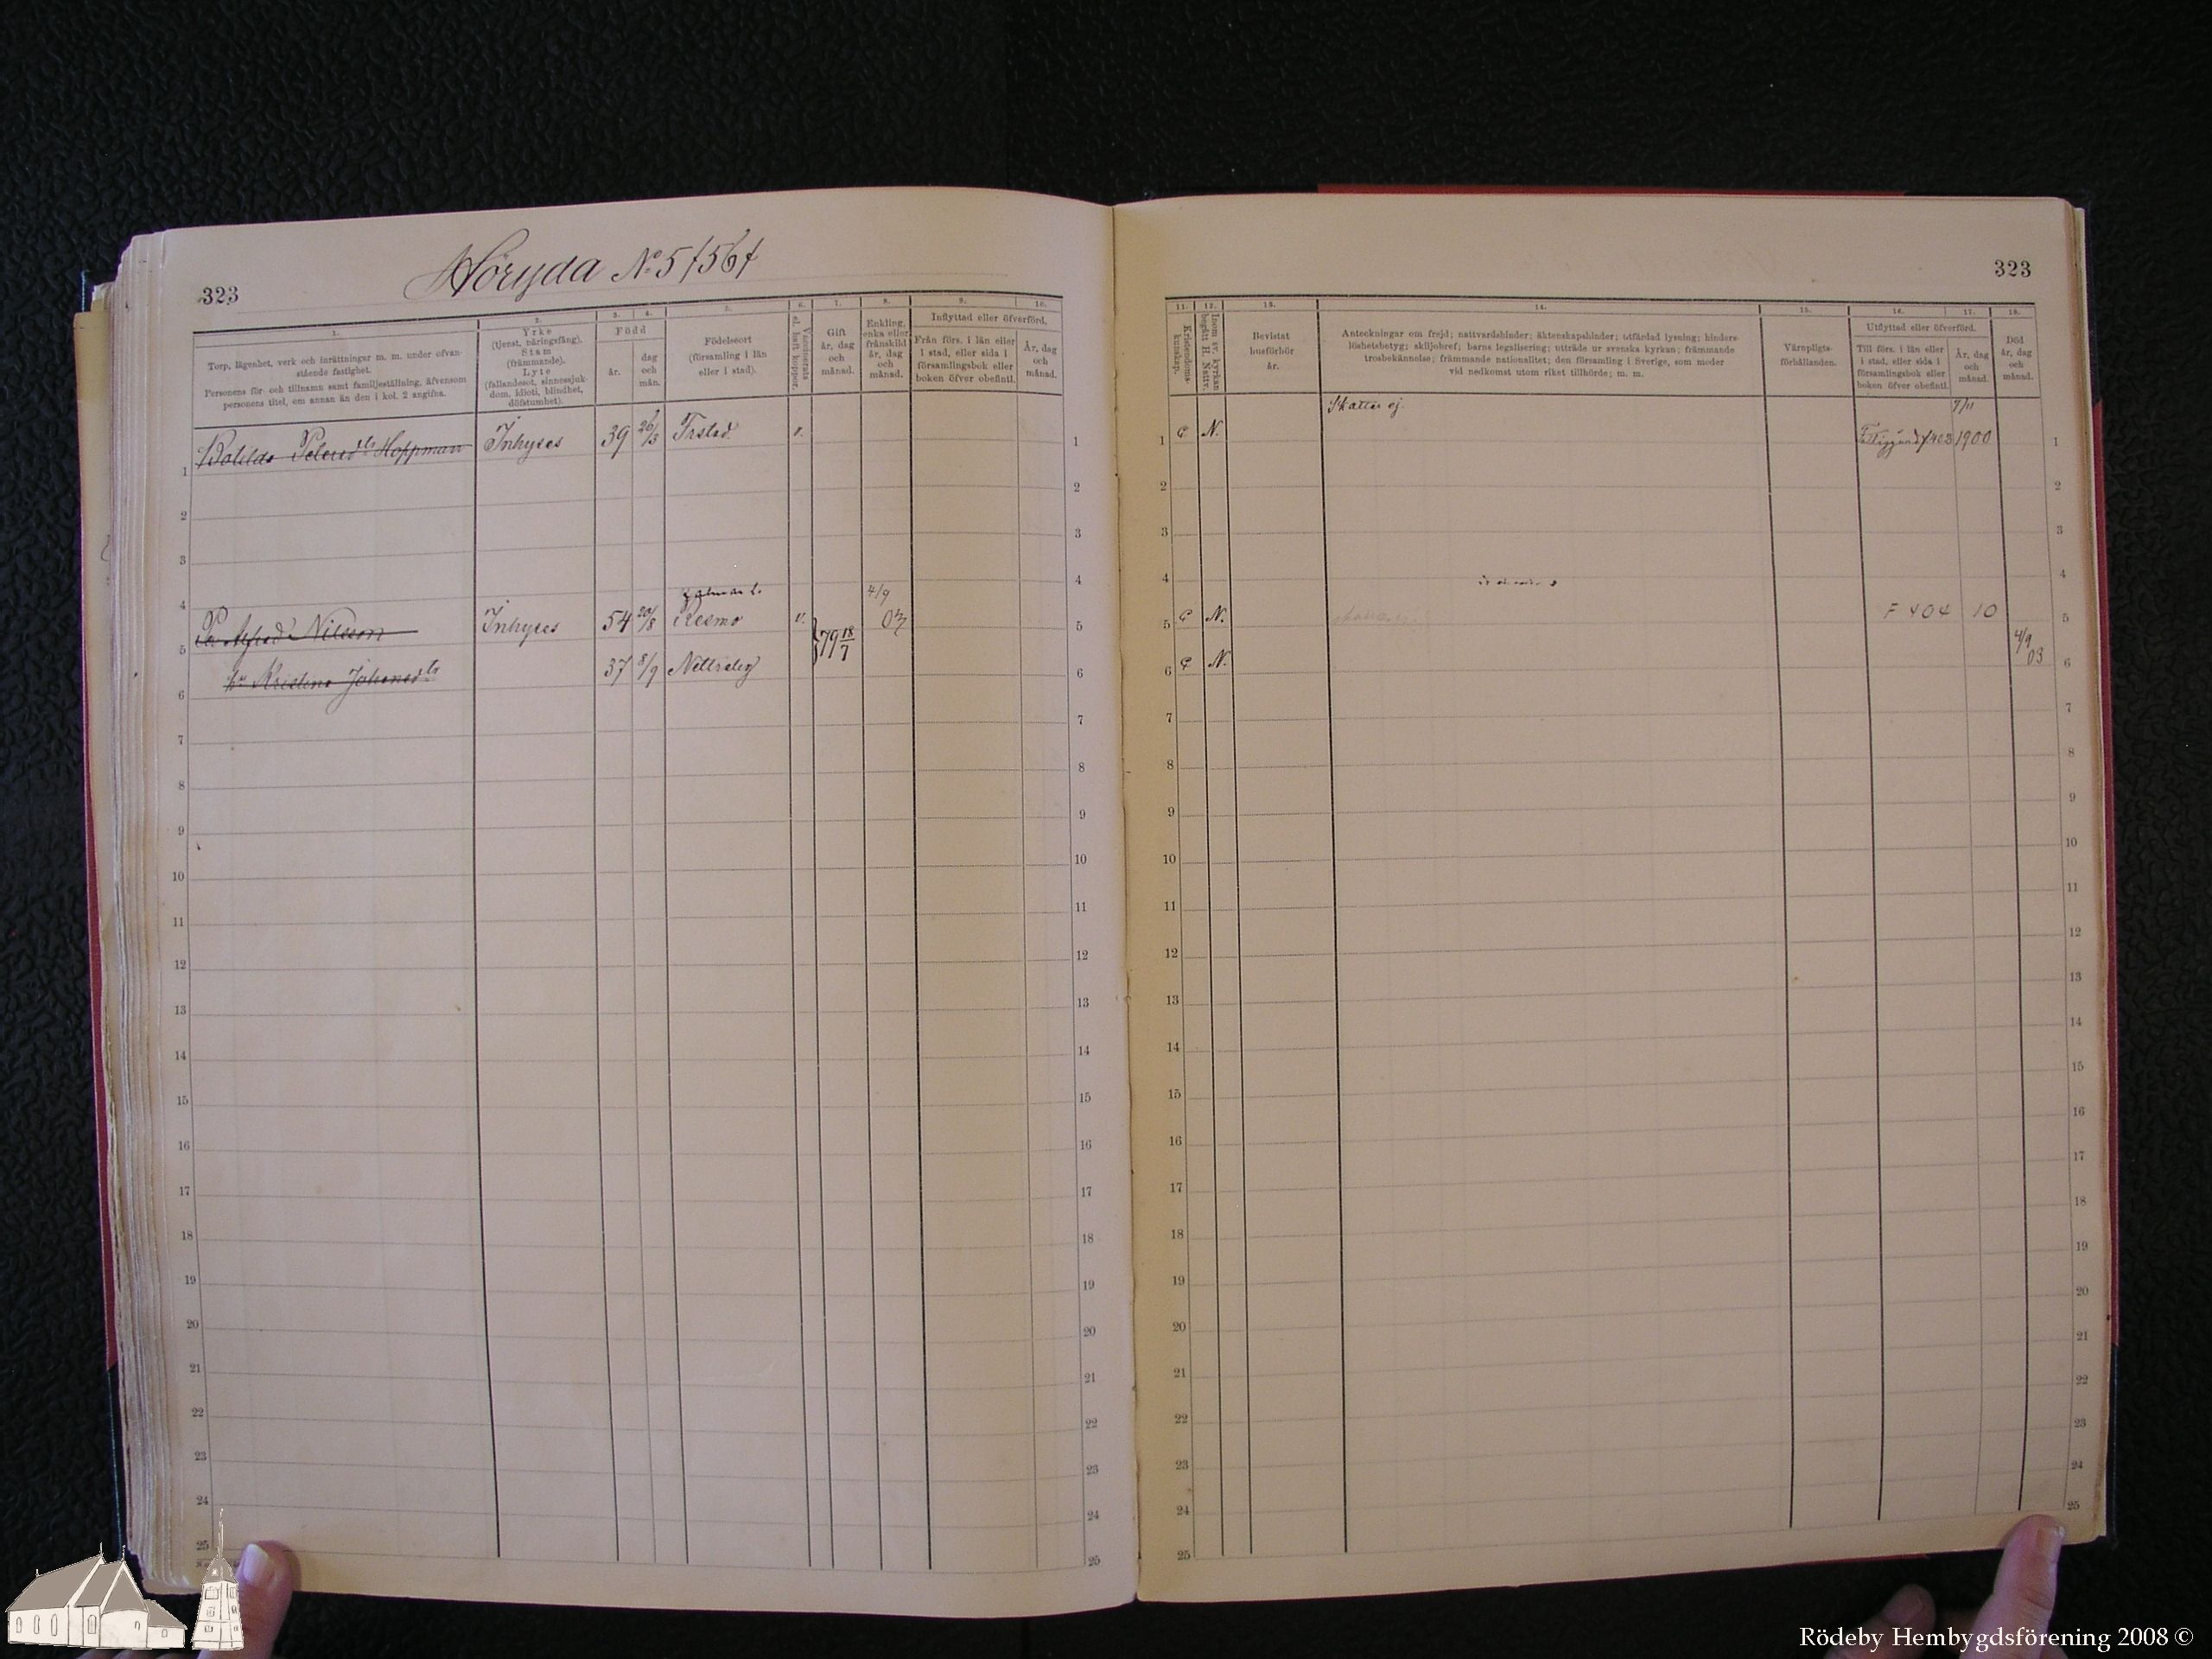 Höryda No 5 /56/
323
1.
Torp, lägenhet, verk och inrättningar m. m. under ofvan-
stående fastighet.
Personens för- och tillnamn samt familjeställning, äfvensom
personens titel, om annan än den i kol. 2 angifna.
2.
Yrke
(tjenst, näringsfång).
Stam
(främmande).
Lyte
(fallandesot, sinnessjuk-
dom, idioti, blindhet,
döfstumhet).
3.
4.
Född
år.
dag
och
mån.
5.
Födelseort
(församling i län
eller i stad).
6.
Vaccinerats
el. haft koppor.
7.
Gift
år, dag
och
månad.
8.
Enkling,
enka eller
frånskild
år, dag
och
månad.
9.
10.
Inflyttad eller öfverförd.
Från förs. i län eller
i stad, eller sida i
församlingsbok eller
boken öfver obefintl.
År, dag
och
månad.
Petersdtr Hoppman Inhyses 39 26/3 v.
1
2
3
4
4/9
Per Alfred Nilsson Inhyses 54 20/8 Resmo v. 79 18/7 03
5
hu Kristina Johansdtr 37 8/9 Nättraby
6
7
8
9
10
11
12
13
14
15
16
17
18
19
20
21
22
23
24
25
323
11.
Kristendoms-
kunskap.
12.
Inom sv. kyrkan
begått H. Nattv.
13.
Bevistat
husförhör
år.
14.
Anteckningar om frejd; nattvardshinder; äktenskapshinder; utfärdad lysning; hinders-
löshetsbetyg; skiljobref; barns legalisering; utträde ur svenska kyrkan; främmande
trosbekännelse; främmande nationalitet; den församling i Sverige, som moder
vid nedkomst utom riket tillhörde; m. m.
15.
Värnpligts-
förhållanden.
16.
17.
Utflyttad eller öfverförd.
Till förs. i län eller
i stad, eller sida i
församlingsbok eller
boken öfver obefintl.
År, dag
och
månad.
18.
Död
år, dag
och
månad.
Skattar ej. 7/11
1 G N. 1900 1
2
3
4
5 G N. F 404 10 5
6 G N. 4/9 03 6
7
8
9
10
11
12
13
14
15
16
17
18
19
20
21
22
23
24
25
Rödeby Hembygdsförening 2008 ©